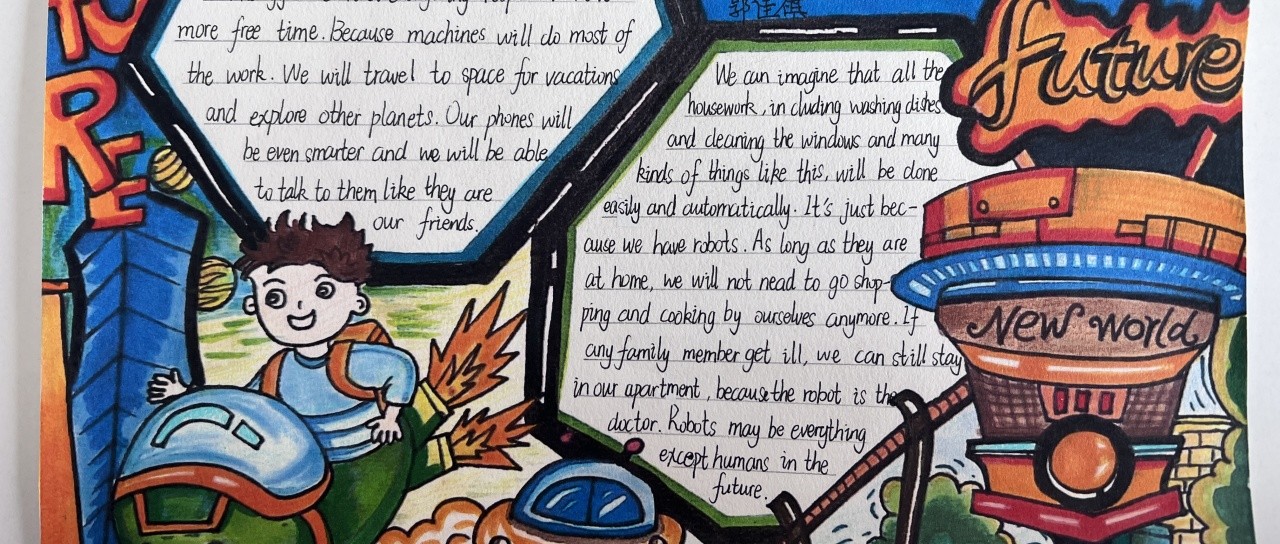 RE
more free time. Because machines will do most of
the work. We will travel to space for vacations
and explore other planets. Our phones will
be even smarter and we will be able
to talk to them like they are
our friends.
future
We can imagine that all the
housework, in cluding washing dishes
and cleaning the windows and many
kinds of things like this, will be done
easily and automatically. It's just bec-
ause we have robots. As long as they are
at home, we will not nead to go shop-
ping and cooking by ourselves anymore. If
any family member get ill, we can still stay
in our apartment, because the robot is the
doctor. Robots may be everything
except humans in the
future.
New World